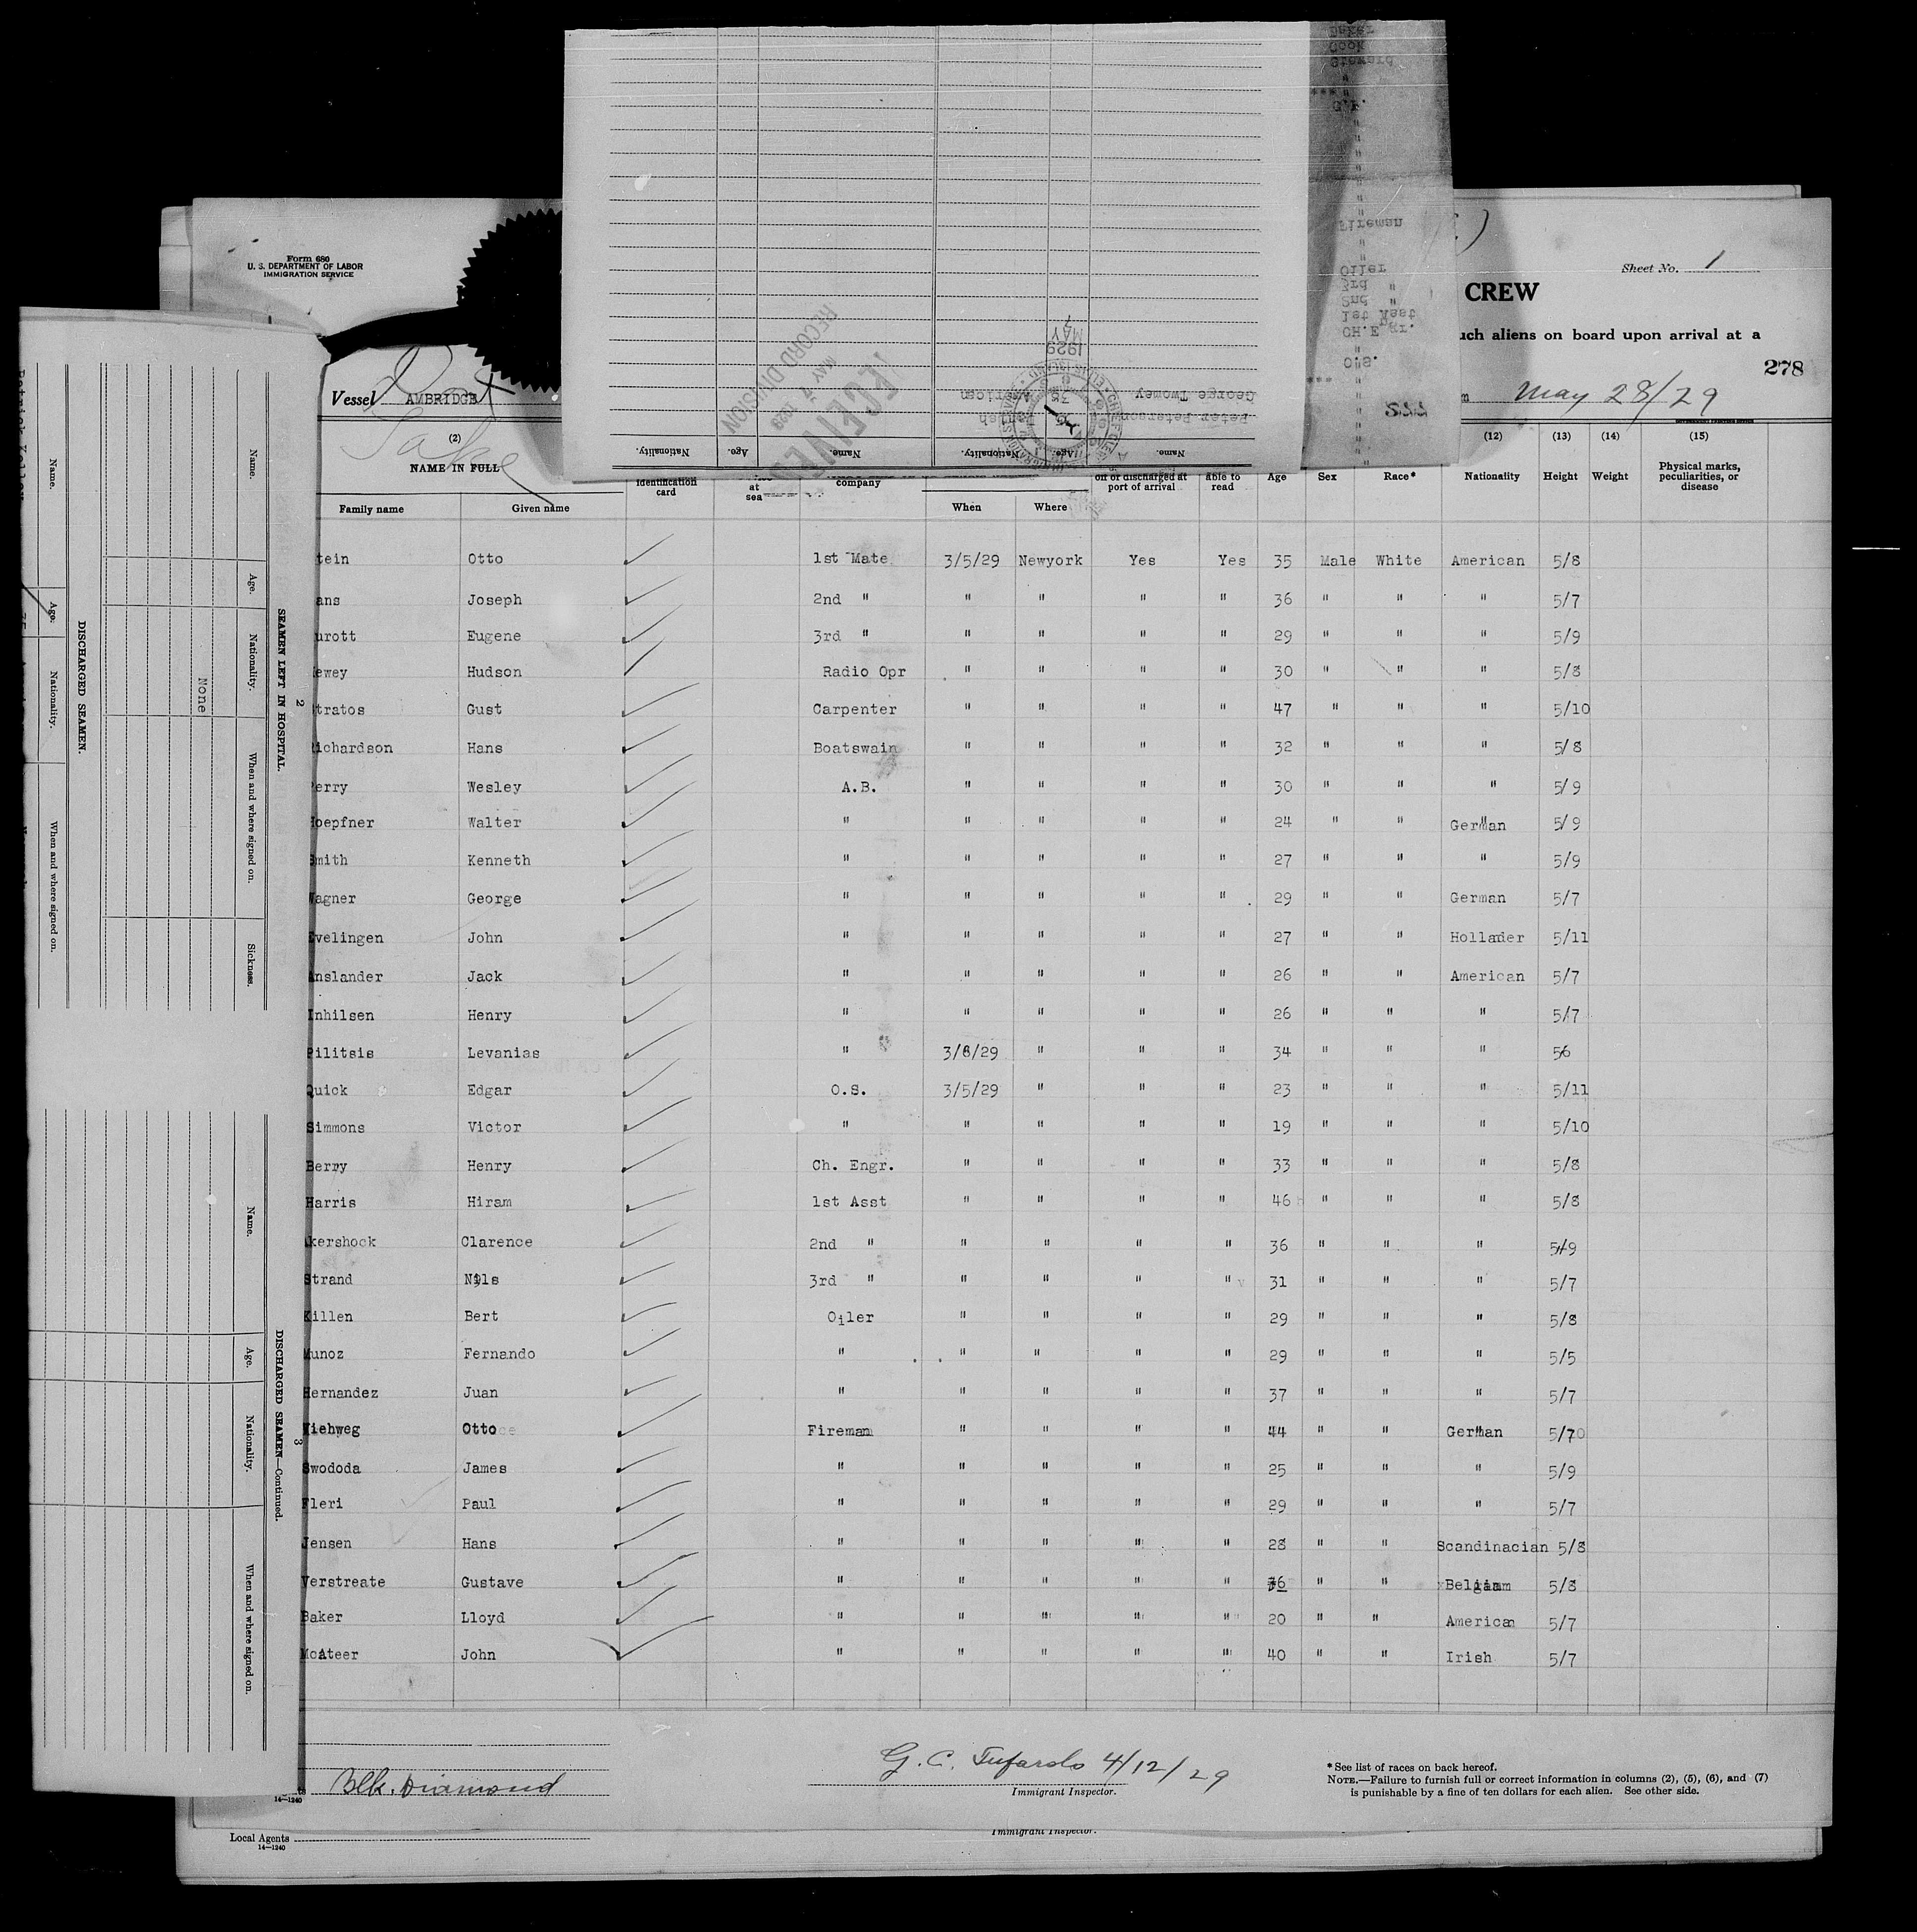 Form 680
U. S. DEPARTMENT OF LABOR
IMMIGRATION SERVICE
Sheet No. 1
CREW
uch aliens on board upon arrival at a
278
Vessel AMBRIDGE
May 28/29
(2) (12) (13) (14) (15)
NAME IN FULL
Family name Given name identification card at sea company When Where off or discharged at port of arrival able to read Age Sex Race* Nationality Height Weight Physical marks, peculiarities, or disease
tein Otto 1st Mate 3/5/29 Newyork Yes Yes 35 Male White American 5/8
ans Joseph 2nd " " " " " 36 " " " 5/7
urott Eugene 3rd " " " " " 29 " " " 5/9
ewey Hudson Radio Opr " " " " 30 " " " 5/8
tratos Gust Carpenter " " " " 47 " " " 5/10
ichardson Hans Boatswain " " " " 32 " " " 5/8
erry Wesley A.B. " " " " 30 " " " 5/9
oepfner Walter " " " " " 24 " " German 5/9
Smith Kenneth " " " " " 27 " " " 5/9
Wagner George " " " " " 29 " " German 5/7
Evelingen John " " " " " 27 " " Hollander 5/11
Anslander Jack " " " " " 26 " " American 5/7
Inhilsen Henry " " " " " 26 " " " 5/7
Pilitsis Levanias " 3/6/29 " " " 34 " " " 56
Quick Edgar O.S. 3/5/29 " " " 23 " " " 5/11
Simmons Victor " " " " " 19 " " " 5/10
Berry Henry Ch. Engr. " " " " 33 " " " 5/8
Harris Hiram 1st Asst " " " " 46 " " " 5/8
Akershock Clarence 2nd " " " " " 36 " " " 5/9
Strand Nils 3rd " " " " " 31 " " " 5/7
Killen Bert Oiler " " " " 29 " " " 5/8
Munoz Fernando " " " " " 29 " " " 5/5
Hernandez Juan " " " " " 37 " " " 5/7
Viehweg Otto Fireman " " " " 44 " " German 5/7
Swododa James " " " " " 25 " " " 5/9
Fleri Paul " " " " " 29 " " " 5/7
Jensen Hans " " " " " 28 " " Scandinacian 5/8
Verstreate Gustave " " " " " 36 " " Belgian 5/8
Baker Lloyd " " " " " 20 " " American 5/7
McAteer John " " " " " 40 " " Irish 5/7
Blk. Diamond
G. C. Tufarolo 4/12/29
Immigrant Inspector.
* See list of races on back hereof.
NOTE.—Failure to furnish full or correct information in columns (2), (5), (6), and (7)
is punishable by a fine of ten dollars for each alien. See other side.
14—1240
Local Agents
14—1240
Immigrant Inspector.
2
SEAMEN LEFT IN HOSPITAL.
Name. Age. Nationality. When and where signed on. Sickness.
None
DISCHARGED SEAMEN.
Name. Age. Nationality. When and where signed on.
3
DISCHARGED SEAMEN—Continued.
Name. Age. Nationality. When and where signed on.
Name. Age. Nationality. Name. Age. Nationality.
Peter Peterson Danish
George Twomey 38 American
RECEIVED
MAY 7 1929
RECORD DIVISION
MAY 7 1929
O.S.
CH.Engr.
1st Asst
2nd "
3rd "
Oiler
Fireman
Steward
Cook
Baker